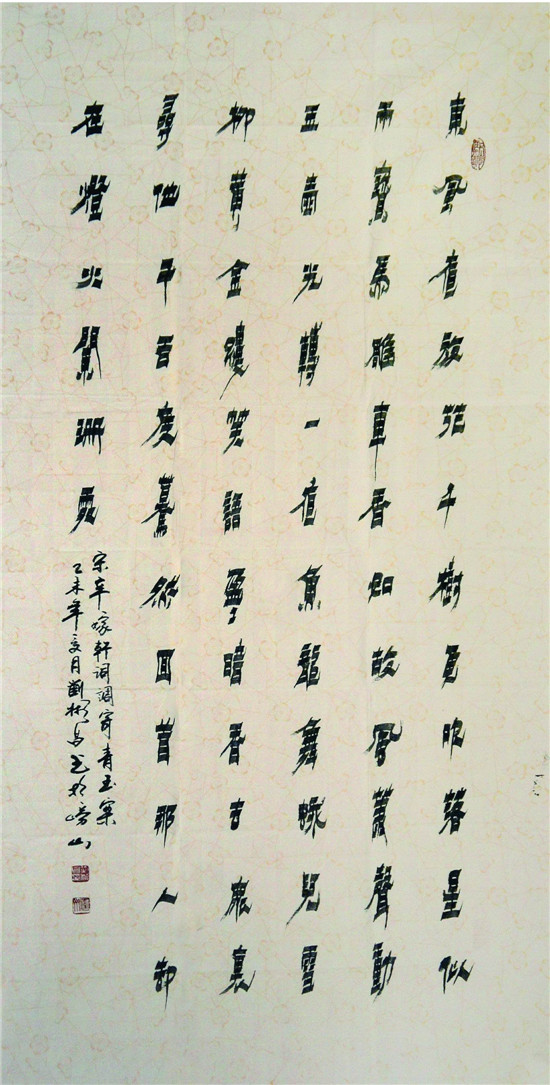 東風夜放花千樹更吹落星似
雨寶馬雕車香如故鳳簫聲動
玉壺光轉一夜魚龍舞蛾兒雪
柳黃金縷笑語盈〻暗香去衆裏
尋他千百度驀然回首那人卻
在燈火闌珊處
宋辛稼軒詞調寄青玉案
乙未年夏月劉彬昌書於嶗山